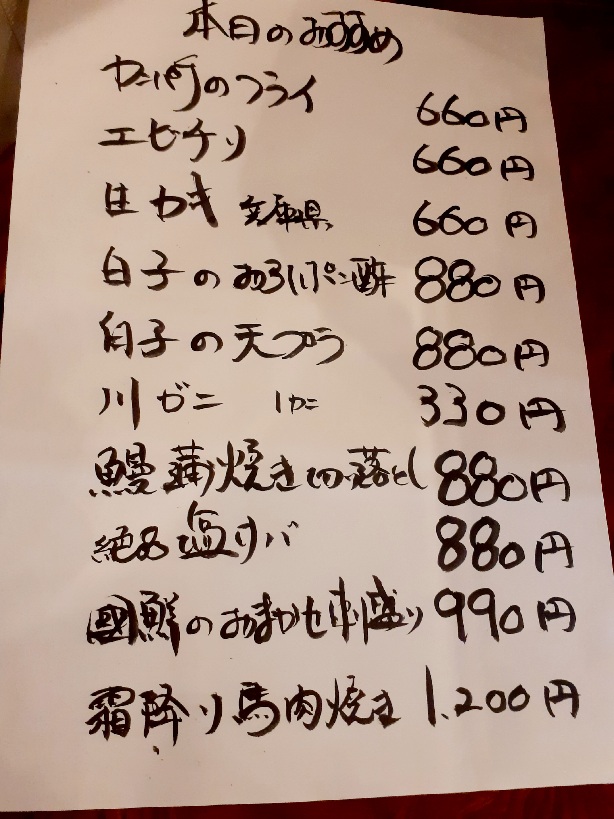 本日のおすすめ
のフライ 660円
エビチリ 660円
生カキ 兵庫県 660円
白子のおろしポン酢 880円
白子の天プラ 880円
川ガニ 1カニ 330円
鰻蒲焼き切り落とし 880円
絶品塩サバ 880円
國鮮のおまかせ刺盛り 990円
霜降り馬肉焼き 1,200円